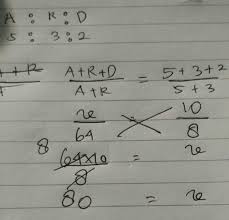 A : R : D
5 : 3 : 2
A+R+D / A+R = 5+3+2 / 5+3
x / 64 = 10 / 8
8 64×10 / 8 = x
80 = x